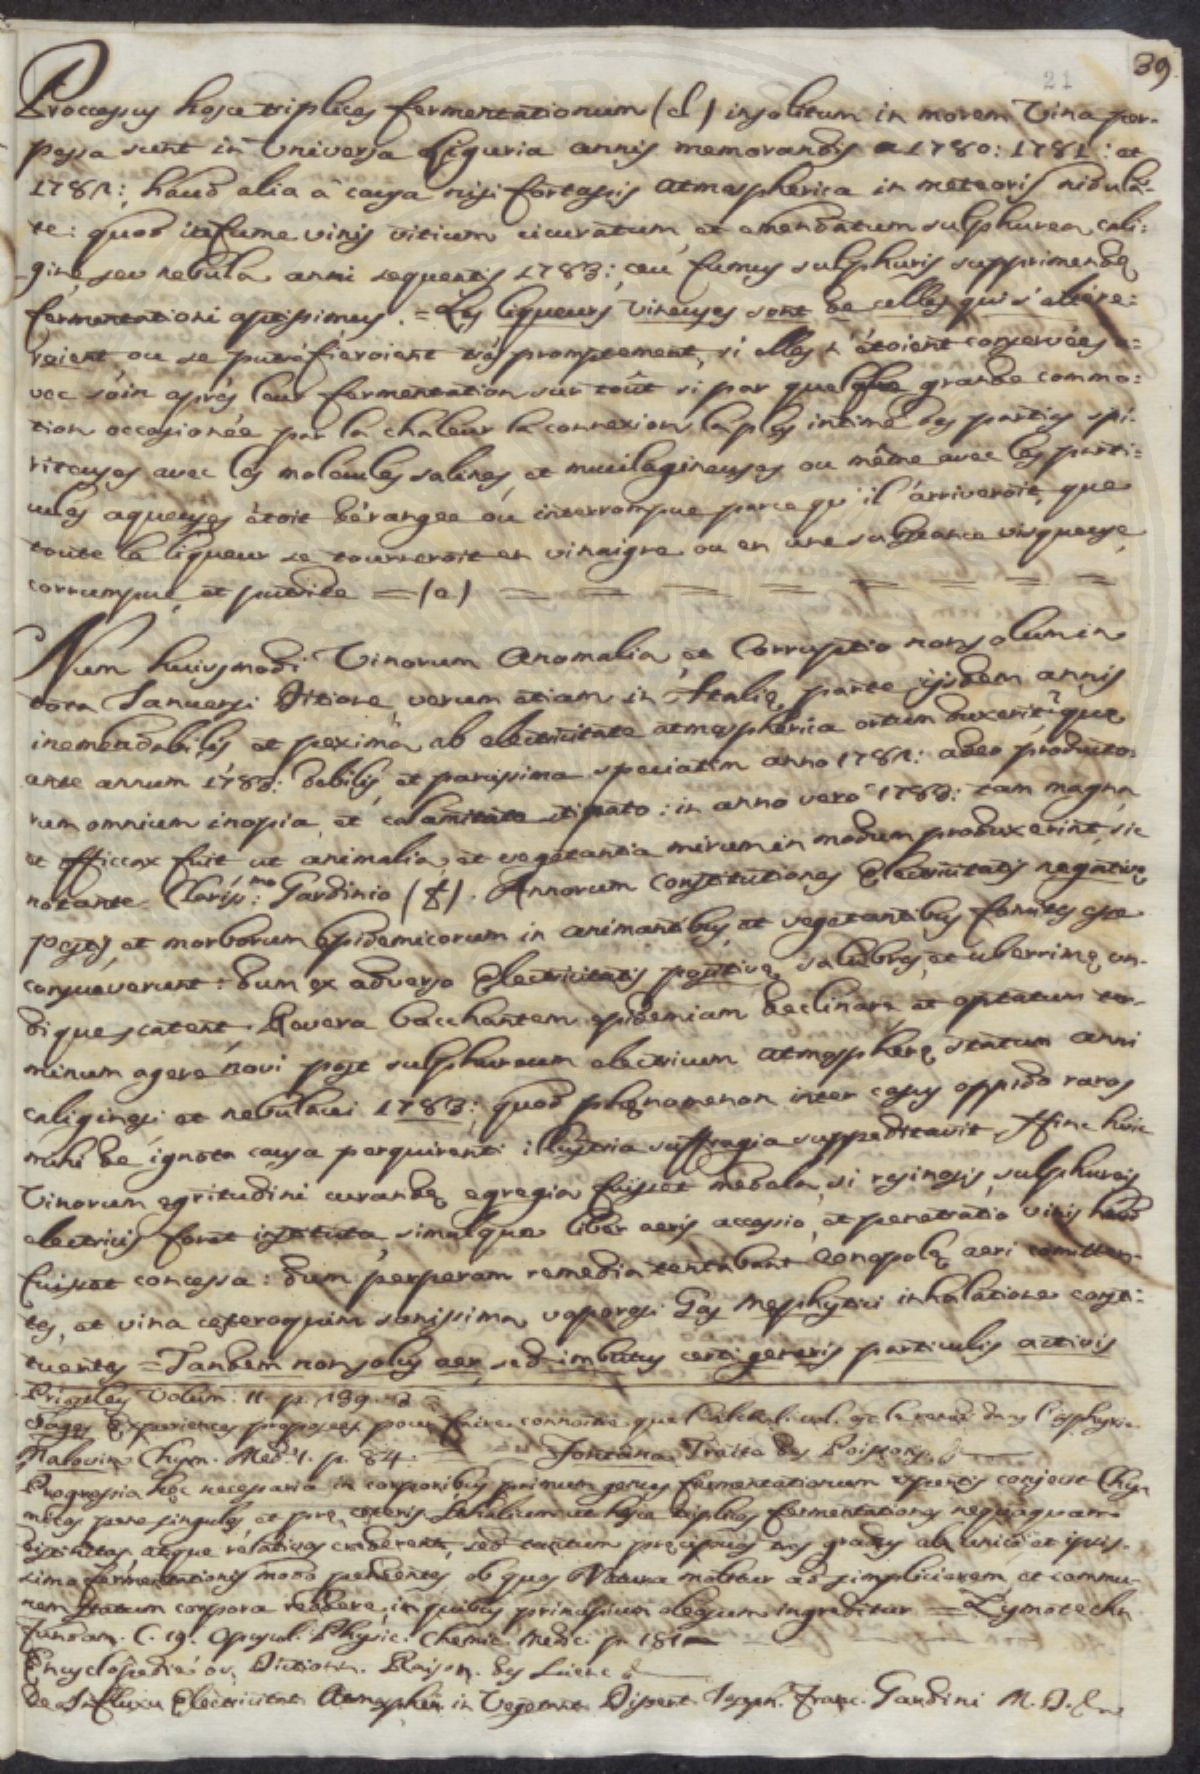 39
21
Processus hosce triplices fermentationum (d) insolitum in morem Vina per-
pessa sunt in Universa Liguria annis memorandis a 1780: 1781: et
1782: haud alia a causa nisi fortassis atmospherica in meteoris nidulā-
te: quod vinis vitium cicuratum, et emendatum sulphurea cali-
gine, seu nebula anni sequentis 1783: ceu fumus sulphuris supprimendę
fermentationi aptissimus. = Les liqueurs vineuses sont de celles qui s'altére-
roient, ou se putréfieroient trés promptement, si elles n'étoient conservées a-
vec soin aprés leur fermentation sur toût si par quelque grande commo-
tion occasionée par la chaleur la connexion la plus intime des parties spi-
ritueuses avec les molecules salines, et mucilagineuses ou même avec les parti-
cules aqueuses étoit dérangée ou interrompue parce qu'il arriveroit, que
toute la liqueur se tourneroit en vinaigre ou en une substance visqueuse,
corrumpue, et putride = (e) = = = = = = =
Num huiusmodi Vinorum Anomalia, et Corruptio non solum in
tota Januensi Ditione, verum etiam in Italię parte ijsdem annis
inemendabilis et pexima ab electricitate atmospherica ortum duxerit? quę
ante annum 1783: debilis, et parcissima speciatim anno 1782: adeo producto-
rum omnium inopia, et calamitate stipato: in anno verò 1783: tam magna
et efficax fuit ut animalia, et vegetantia mirum in modum produxerint, sic
notante Claris:mo Gardinio (f). Annorum constitutiones Electricitatis negativę
pestis, et morborum Epidemicorum in animantibus, et vegetantibus fomites esse
consueverunt: dum ex adverso Electricitatis positivę salubres, et uberrimę un-
dique scatent. Revera bacchantem epidemiam declinare et optatum ter-
minum agere novi post sulphureum electricum atmospherę statum anni
caliginosi et nebulacei 1783: quod phęnomenon inter casus oppido raros
mihi de ignota causa perquirenti illustria suffragia suppeditavit. Hinc huic
Vinorum ęgritudini curandę egregia fuisset medela, si resinosis, sulphureis
electricis foret instituta, simulque liber aeris accessio, et penetratio vitis haud
fuisset concessa: dum perperam remedia tentabant Oenopolę aeri comitten-
tes, et vina cęteroquin sanissima vaporosi Gas Mephytici inhalatione consti-
tuentes = Tandem non solus aer, sed imbutus certi generis particulis activis
Pristley Volum. 11. p. 189.
Sages Experiences proposées pour faire connoitre que l'alchal. vol. est le remed. dans l'asphyxie
Malovin Chym. Med. 1. p. 84. Fontana Traité des Poissons.
Progressia hęc necessaria in corporibus primum genus fermentationum expertis conjecit Chy-
micos pene singulos, et prę cęteris Sthalium ut hosce triplices fermentationes nequaquam
distinctas, atque relativas crederent, sed tantum pręcipuos tres gradus ab unico et ipsis-
simo fermentationis modo pendentes, ob quos Natura molitur ad simpliciorem, et commu-
nem statum corpora reddere, in quibus principium oleosum ingreditur = Zymotechn.
fundam. C. 19. Opuscul. Physic. Chemic. Medic. p. 181
Encyclopédie ou Dictionn. Raison. des Scienc.
De Influxu Electricitat. Atmospher. in Vegetant. Dissert. Joseph. Franc. Gardini M. D.